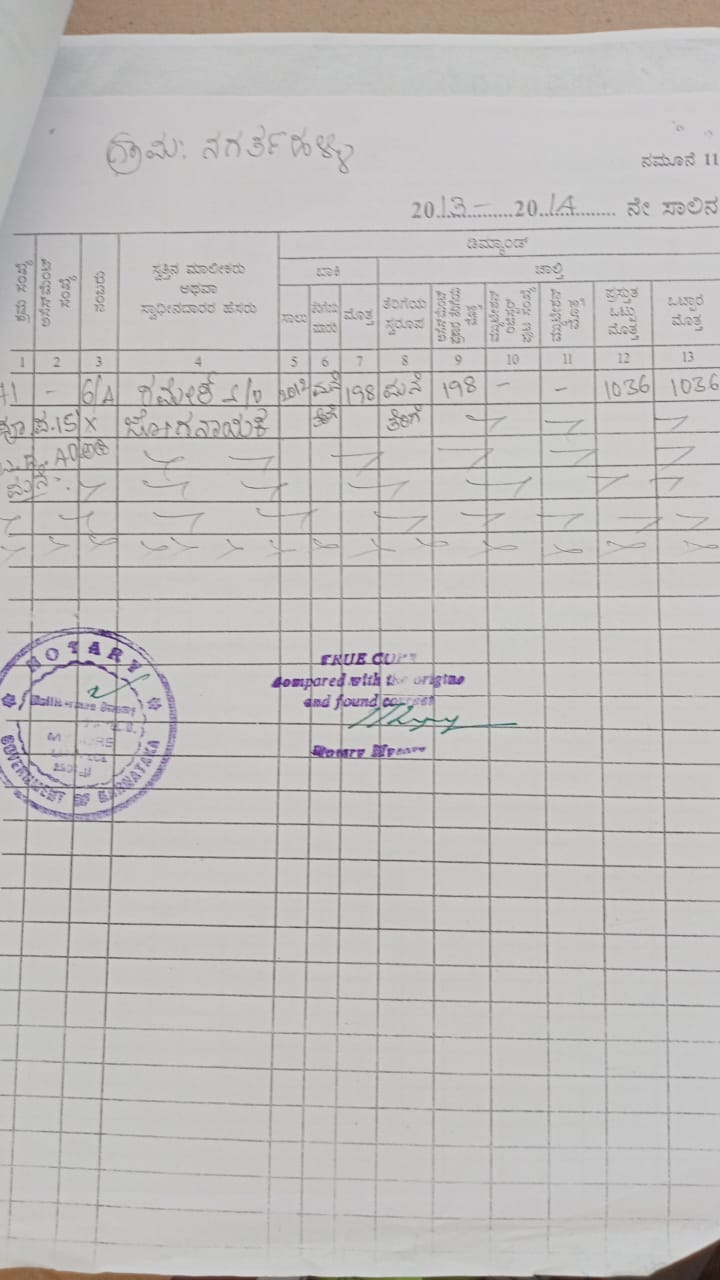 ಗ್ರಾಮ: ನಗರ್ತಹಳ್ಳಿ
ನಮೂನೆ 11
2013-2014 ನೇ ಸಾಲಿನ
ಡಿಮ್ಯಾಂಡ್
ಬಾಕಿ ಚಾಲ್ತಿ
ಕ್ರಮ ಸಂಖ್ಯೆ
ಅಸೆಸ್‌ಮೆಂಟ್ ಸಂಖ್ಯೆ
ನಂಬರು
ಸ್ವತ್ತಿನ ಮಾಲೀಕರು
ಅಥವಾ
ಸ್ವಾಧೀನದಾರರ ಹೆಸರು
ಸಾಲು
ಮೊತ್ತ
ತೆರಿಗೆಯ
ಸ್ವರೂಪ
ಮ್ಯುಟೇಶನ್ ರಿಜಿಸ್ಟರ್ ಪುಟ ಸಂಖ್ಯೆ
ಮ್ಯುಟೇಶನ್ ಮೊತ್ತ
ಪ್ರಸ್ತುತ
ಒಟ್ಟು
ಮೊತ್ತ
ಒಟ್ಟಾರೆ
ಮೊತ್ತ
1 2 3 4 5 6 7 8 9 10 11 12 13
71 - 6/A ರಮೇಶ್ S/o 2012 ಮನೆ 198 ಮನೆ 198 - - 1036 1036
15 X ಬೋಗನಾಯಕ ತೆರಿಗೆ ತೆರಿಗೆ
ಮನೆ
NOTARY
GOVERNMENT OF KARNATAKA
TRUE COPY
Compared with the origina
and found correct
Notary Mysore